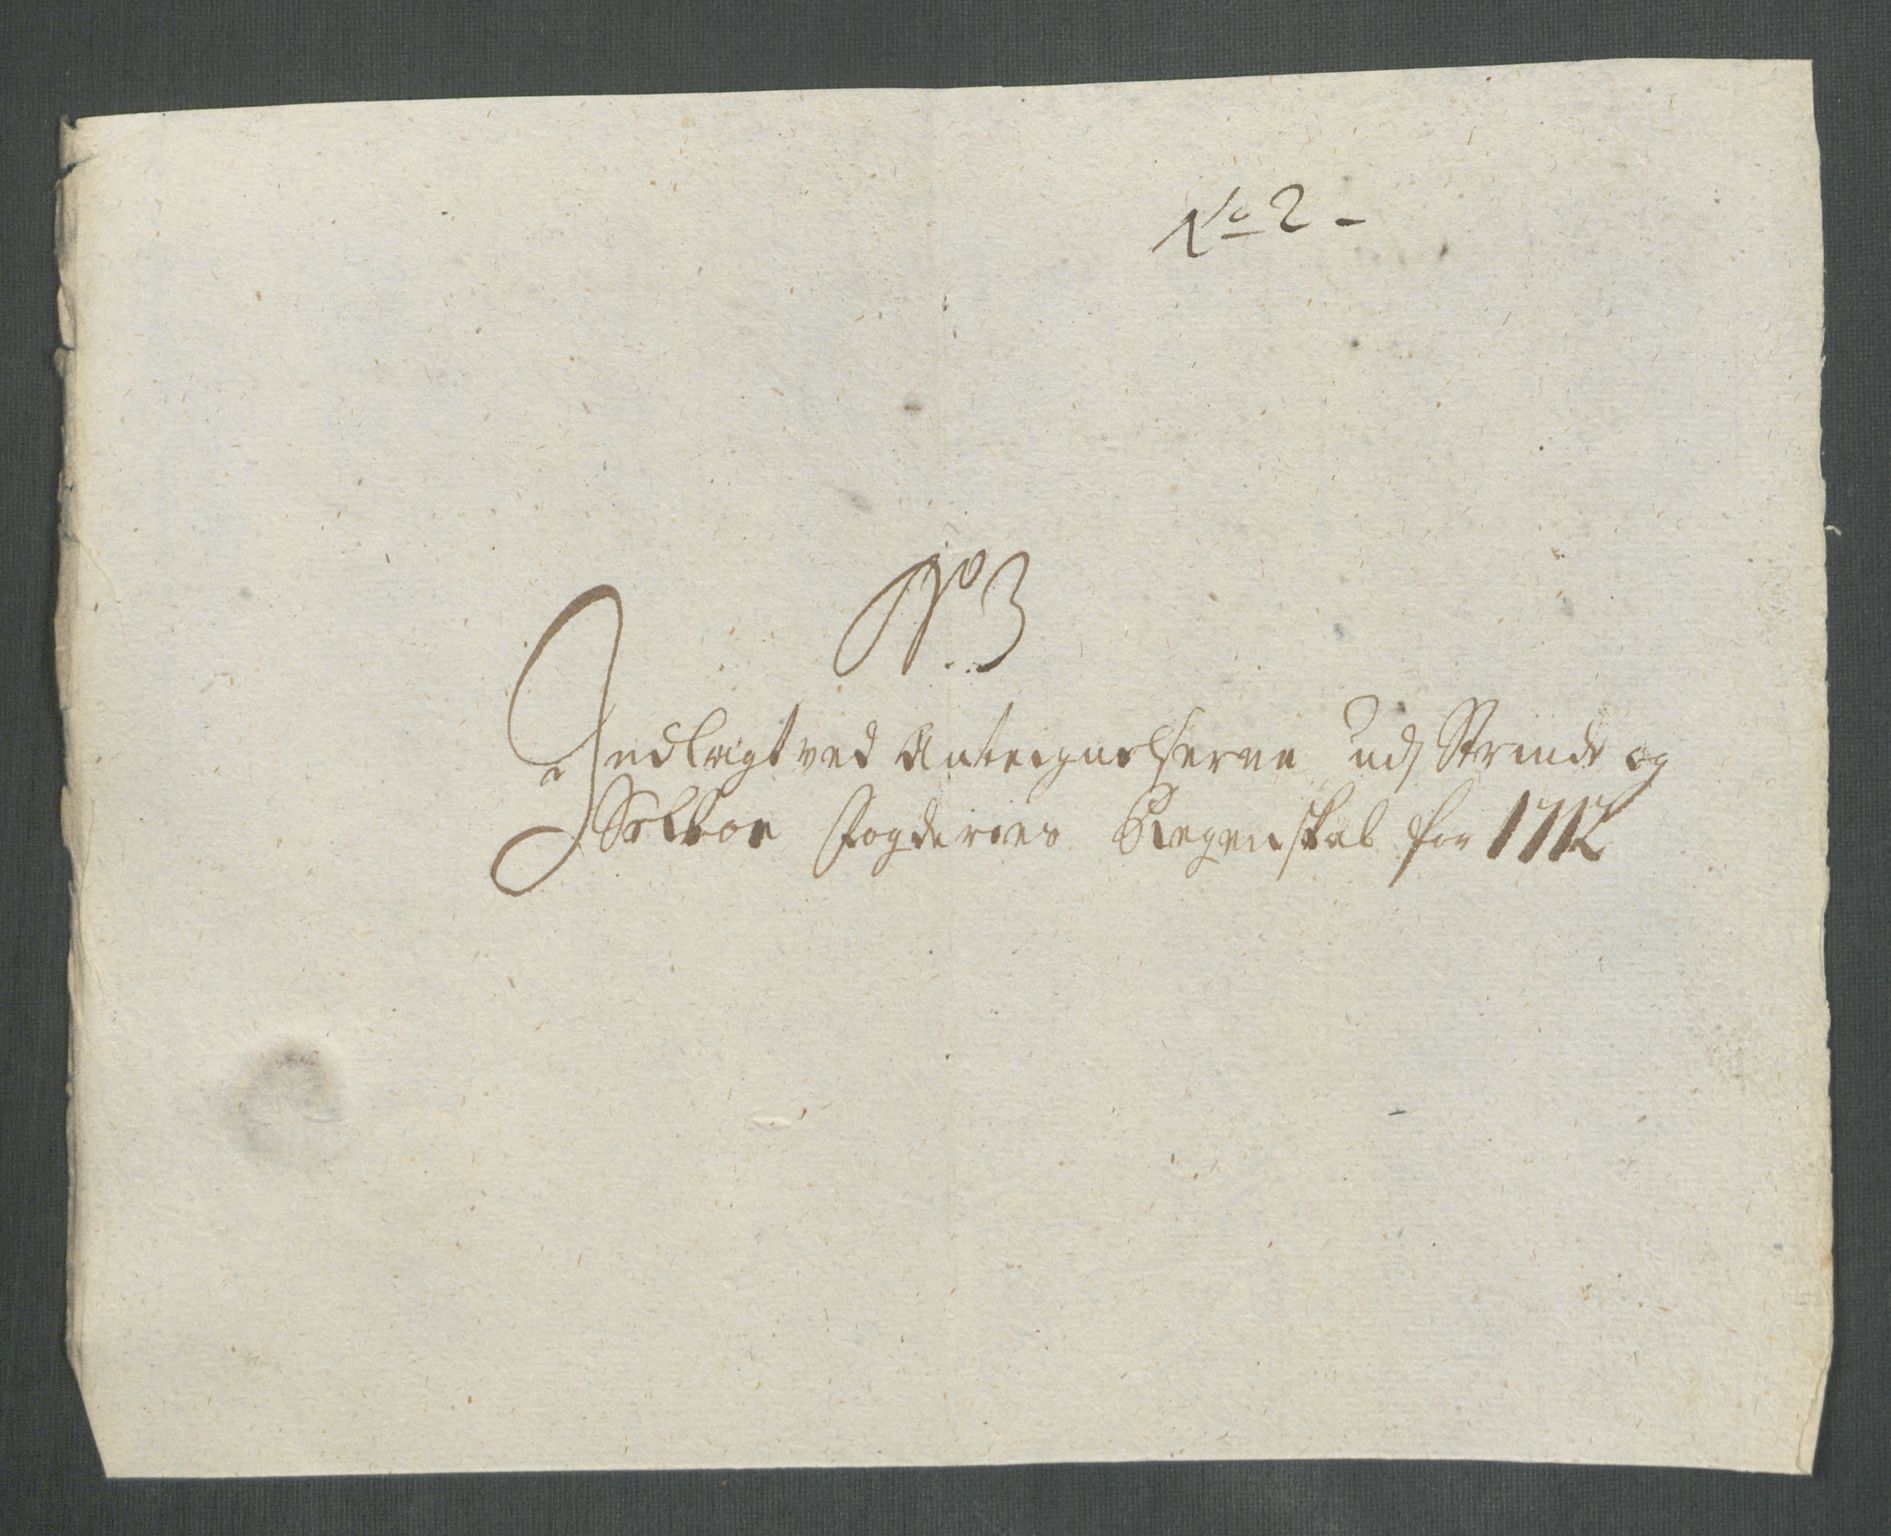 No 2 -
No 3
Indlagt ved Antegnelserne udj Strinde og
Selboe Fogderies Regenskab for 1712